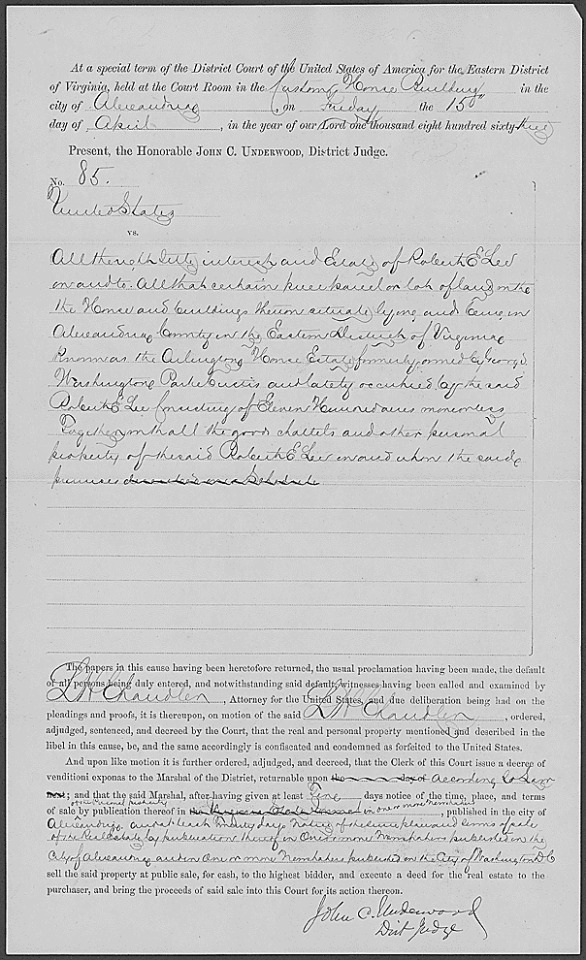 At a special term of the District Court of the United States of America for the Eastern District
of Virginia, held at the Court Room in the Custom House Building in the
city of Alexandria on Friday the 15"
day of April, in the year of our Lord one thousand eight hundred sixty-
Present, the Honorable JOHN C. UNDERWOOD, District Judge.
No. 85.
United States
vs.
All the right title interest and Estate of Robert E Lee
in and to All that certain piece parcel or lot of land with
the House and buildings thereon situate lying and being in
Alexandria County in the Eastern District of Virginia
Known as the Arlington House Estate formerly owned by George
Washington Parke Custis and lately occupied by the said
Robert E Lee Consisting of Eleven Hundred acres more or less
Together with all the goods chattels and other personal
property of the said Robert E Lee in and upon the said
premises described in a Schedule
The papers in this cause having been heretofore returned, the usual proclamation having been made, the default
of all persons being duly entered, and notwithstanding said default, witnesses having been called and examined by
L H Chandler, Attorney for the United States, and due deliberation being had on the
pleadings and proofs, it is thereupon, on motion of the said L H Chandler, ordered,
adjudged, sentenced, and decreed by the Court, that the real and personal property mentioned and described in the
libel in this cause, be, and the same accordingly is confiscated and condemned as forfeited to the United States.
And upon like motion it is further ordered, adjudged, and decreed, that the Clerk of this Court issue a decree of
venditioni exponas to the Marshal of the District, returnable upon According to Law
next; and that the said Marshal, after having given at least days notice of the time, place, and terms
of the Personal property
of sale by publication thereof in in one or more Newspapers, published in the city of
Alexandria and at least Twenty days Notice of the time place and terms of sale
of the Real Estate by publication thereof in One or more Newspapers published in the
City of Alexandria and in One or more Newspapers published in the City of Washington D C
sell the said property at public sale, for cash, to the highest bidder, and execute a deed for the real estate to the
purchaser, and bring the proceeds of said sale into this Court for its action thereon.
John C. Underwood
Dist Judge